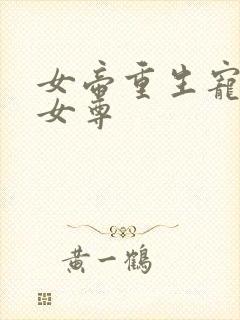 女帝重生寵
女尊
黃一鶴